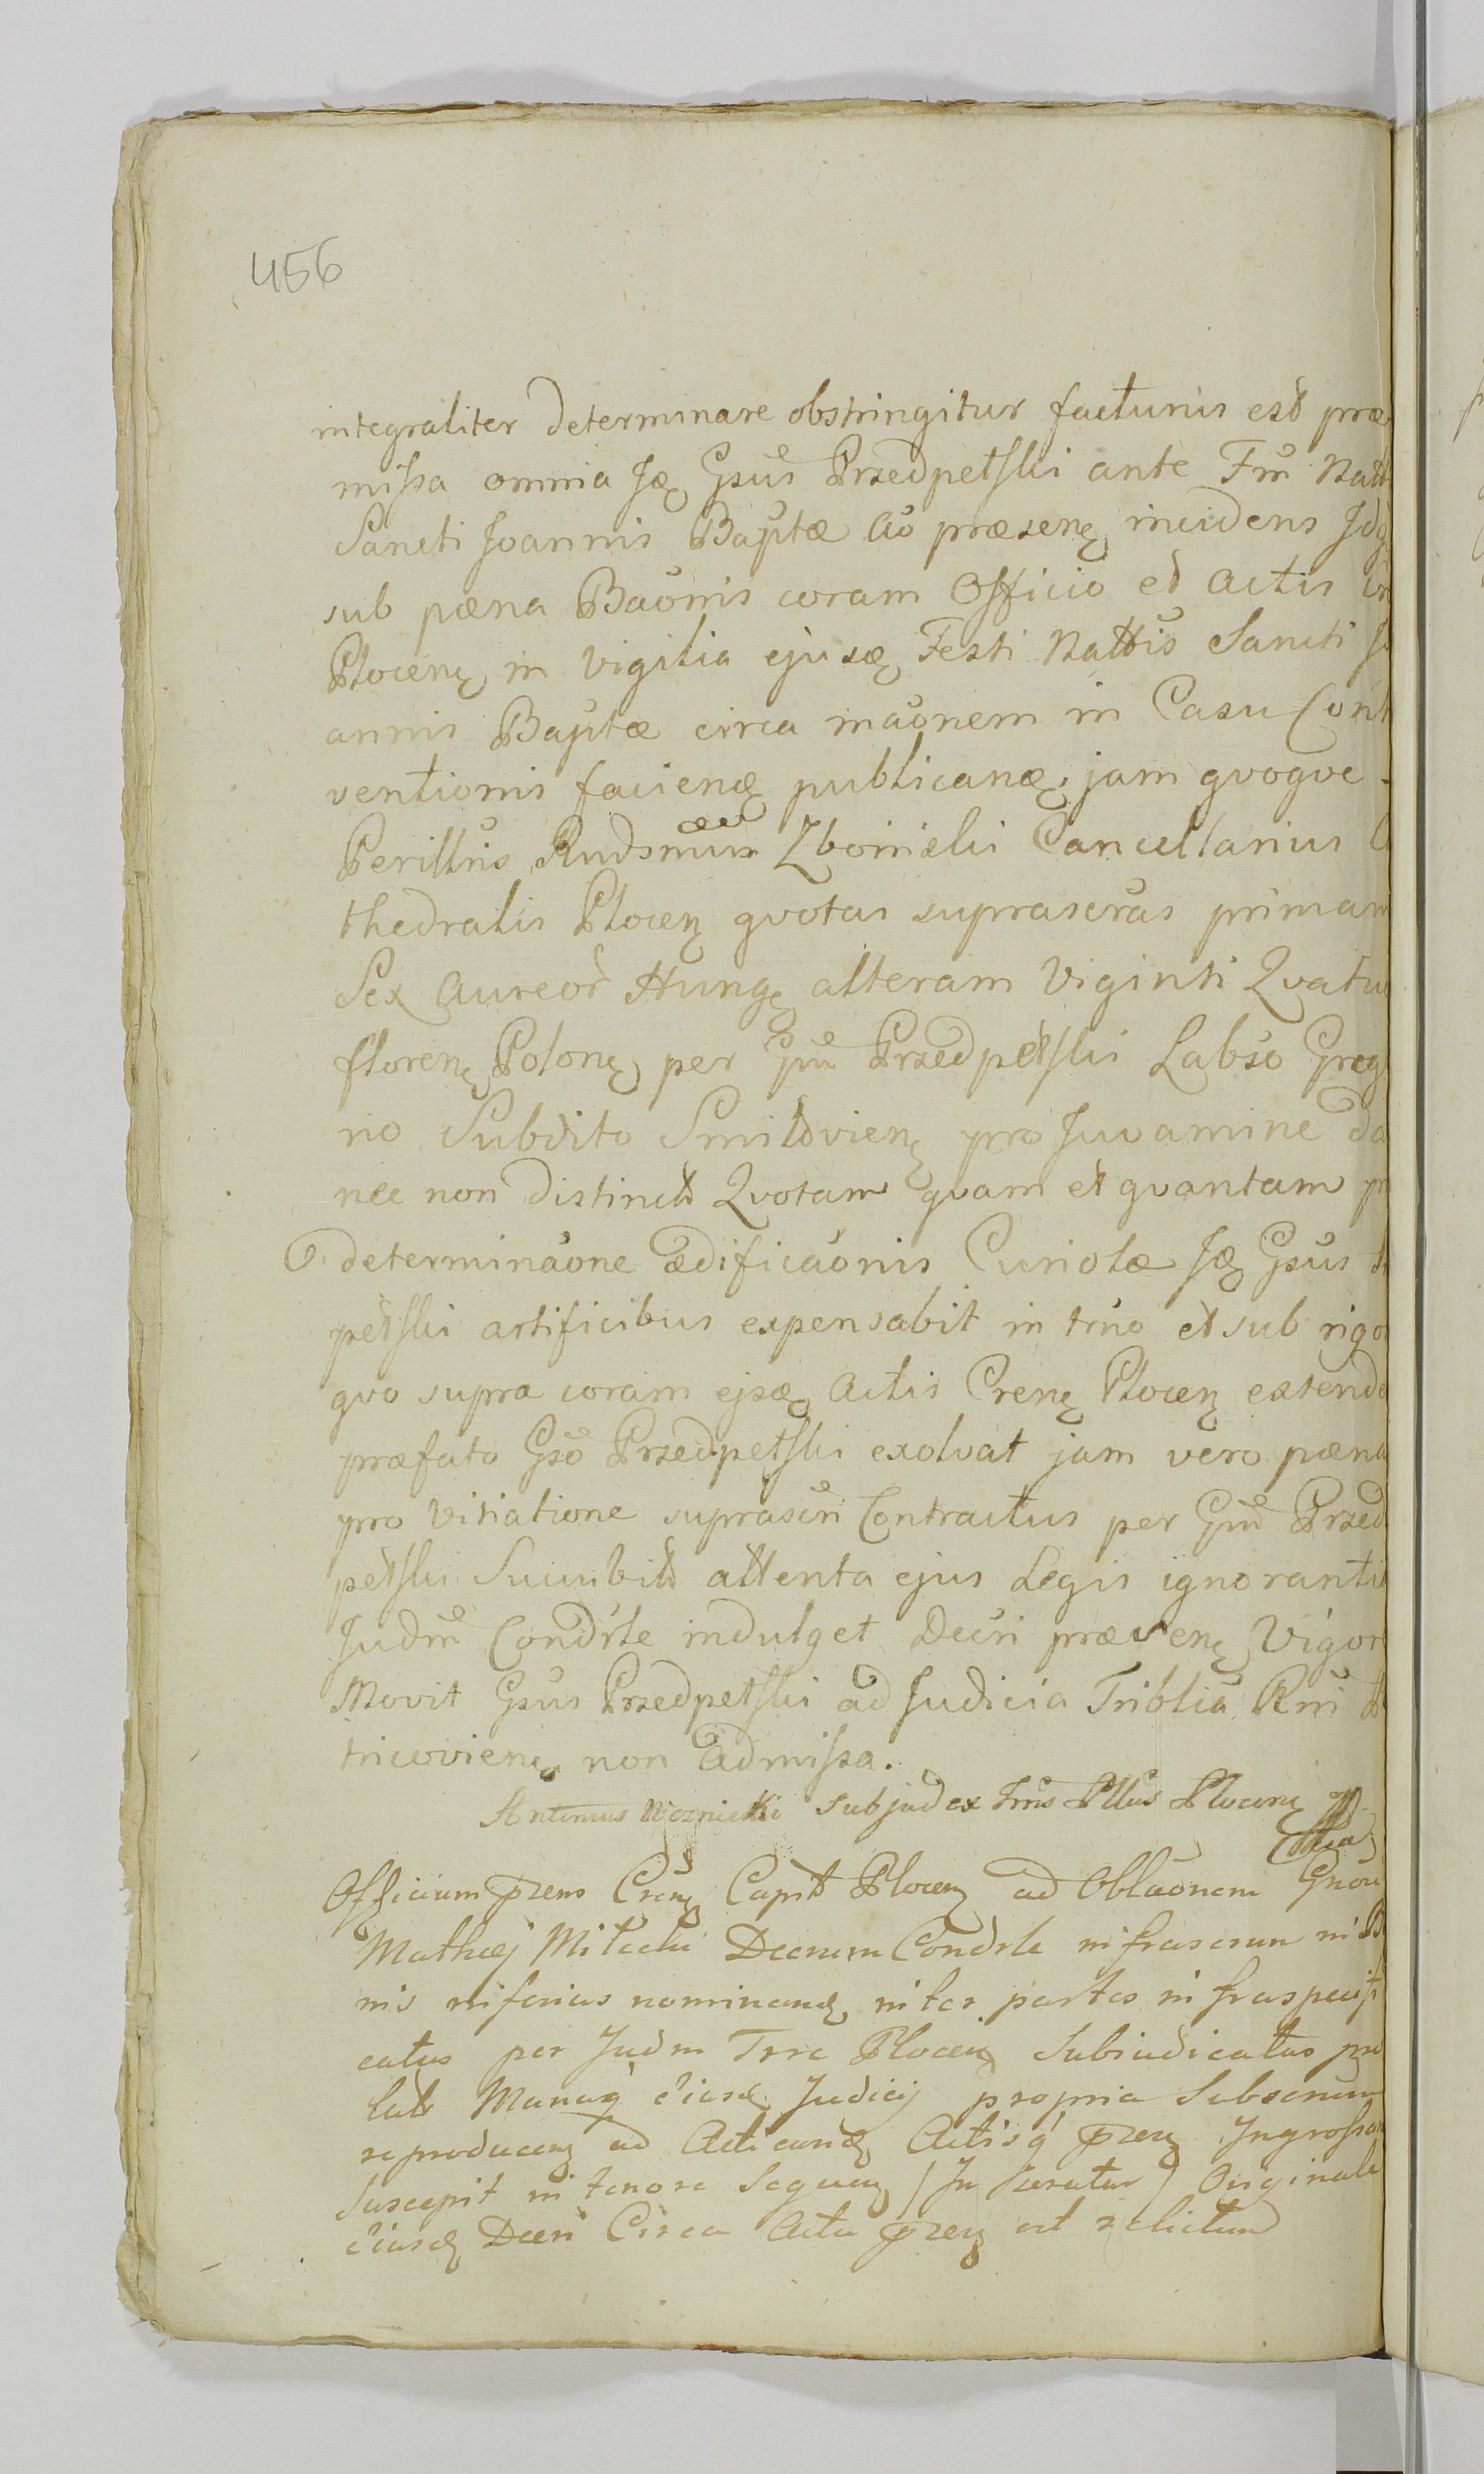 456
integraliter determinare obstringitur facturus est præ
missa omnia Jdę Gsus Przedpełski ante Fm Natt
Sancti Joannis Baptæ Ao præsenę incidens Idq
sub pæna Baonis coram Officio et Actis
Plocenę in Vigilia ejusdę Festi Nattis Sancti Jo
annis Baptæ circa inaonem in Casu Cont
ventionis faciendę publicandę, jam qvoqve
Perillris Rndsmus Zboinski Cancellarius
thedralis Plocenę qvotas suprascras primam
Sex Aureor Hungę alteram Viginti Qvatu
florenę Polonę per Gm Przedpełski Labso Greg
rio Subdito Smilovienę pro Juvamine da
nec non distinctt Qvotam qvam et qvantam
determinaone ædificaonis Curiolæ Jdę Gsus
pełski artificibus expensabit in trno et sub rigo
qvo supra coram ejsdę Actis Crenę Plocenę extende
præfato Gso Przedpełski exolvat jam vero pæna
pro Vitiatione suprascri Contractus per Gm Przed
pełski Succubitt attenta ejus Legis ignorantia
Judm Condrle indulget Decri præsenę Vigor
Movit Gsus Przedpełski ad Judicia Triblia Rni P
tricovienę non admissa.
Antonius Subjudex Trris Pttus Plocenę
Officium præns Crenę Capitt Plocenę ad Oblaonem Gnosi
Mathæj Miłecki Decrum Condrle infrascrum
nis inferius nominandę inter partes infraspecifi
catas per Judm Trre Plocenę Subiudicatas
Manuq eiusdę Judicij propria Subscrum
reproducenę ad Acticandę Actisq prænę Ingrossan
Suscepit in tenore Sequenę (In seratur) Originale
eiusdę Decri Circa Acta prænę est relictum